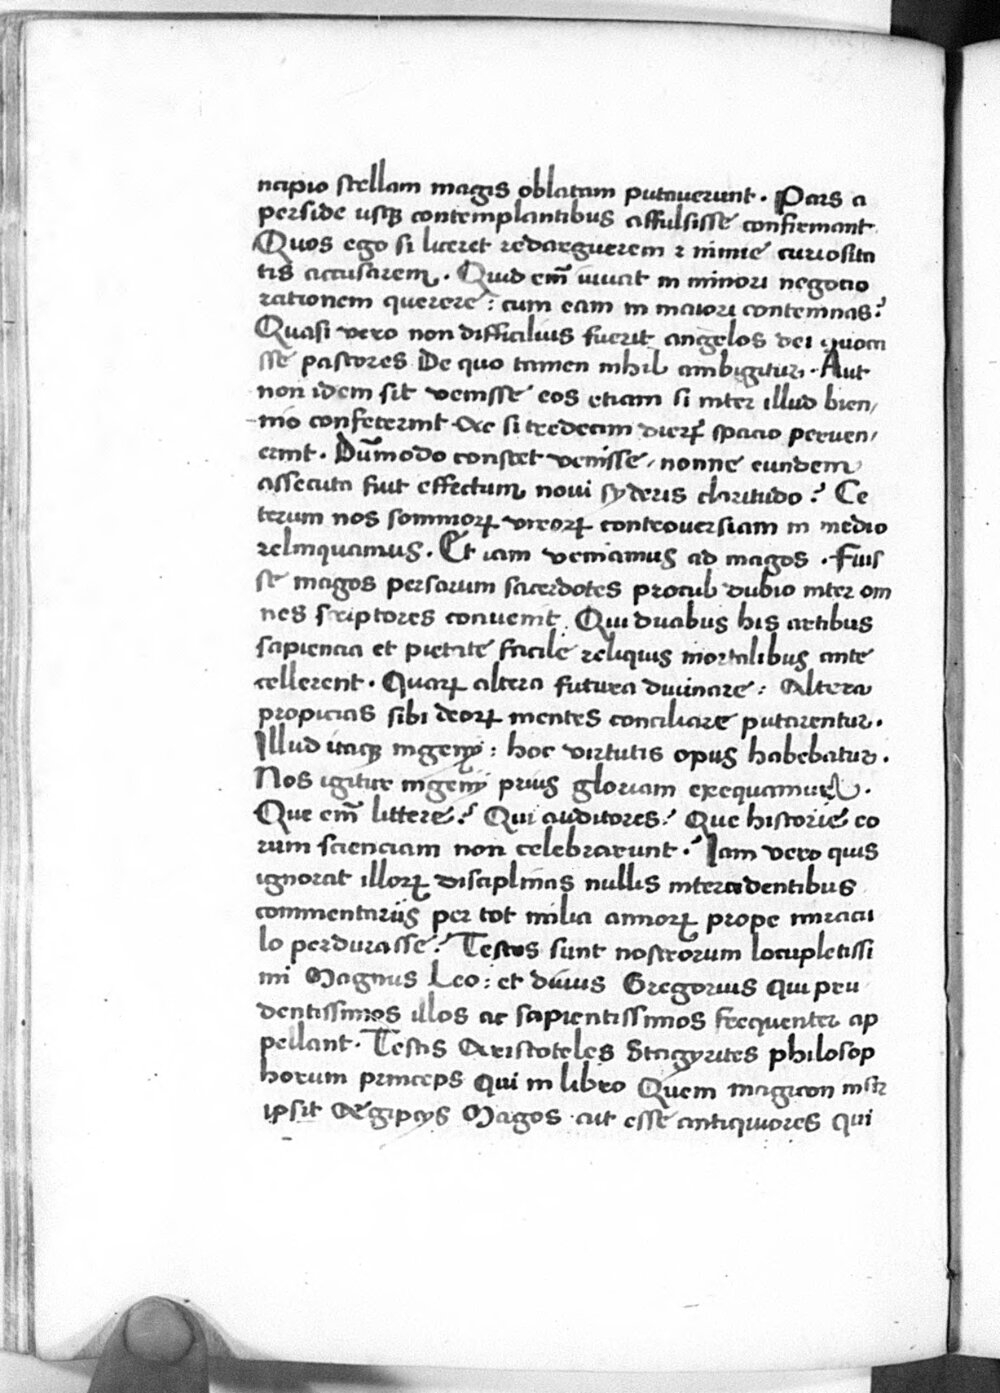 ncipio stellam magis oblatam putauerunt. Pars a
perside usqꝫ contemplantibus affulsisse confirmant.
Quos ego si liceret redarguerem ⁊ nimie curiosita
tis accusarem. Quid em̄ iuuat in minori negocio
rationem querere: cum eam in maiori contemnas?
Quasi vero non difficilius fuerit angelos dei
sse pastores De quo tamen nihil ambigitur. Aut
non idem sit venisse eos etiam si inter illud bien/
nio confecerint Ac si tredecim dierꝝ spacio perven/
erint. Dūmodo constet venisse, nonne eundem
assecuta fuit effectum noui syderis claritudo? Ce
terum nos sommorꝝ virorꝝ controversiam in medio
relinquamus. Et iam veniamus ad magos. Fuis
se magos persarum sacerdotes procul dubio inter om
nes scriptores conuenit. Qui duabus his artibus
sapiencia et pietate facile reliquis mortalibus ante
cellerent. Quarꝝ altera futura diuinare: Altera
propicias sibi deorꝝ mentes conciliare putarentur.
Illud itaqꝫ ingenij: hoc virtutis opus habebatur.
Nos igitur ingenij prius gloriam exequamur.
Que em̄ littere? Qui auditores? Que historie eo
rum scienciam non celebrarunt? Iam vero quis
ignorat illorꝝ disciplinas nullis intercedentibus
commentariis per tot milia annorꝝ prope miracu
lo perdurasse? Testes sunt nostrorum locupletissi
mi Magnus Leo: et diuus Gregorius qui pru
dentissimos illos ac sapientissimos frequenter ap
pellant. Testis Aristoteles Stagyrites philosop
horum princeps qui in libro Quem magicon inscr
ipsit Aegipcijs Magos ait esse antiquiores qui